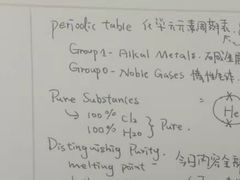 periodic table 化学元素周期表.
Group 1 - Alkal Metals. 碱金属
Group 0 - Noble Gases 惰性
Pure Substances
↳ 100% Cl2
100% H2O } Pure.
He
Distinguishing Purity.
melting point - 今日内容全部